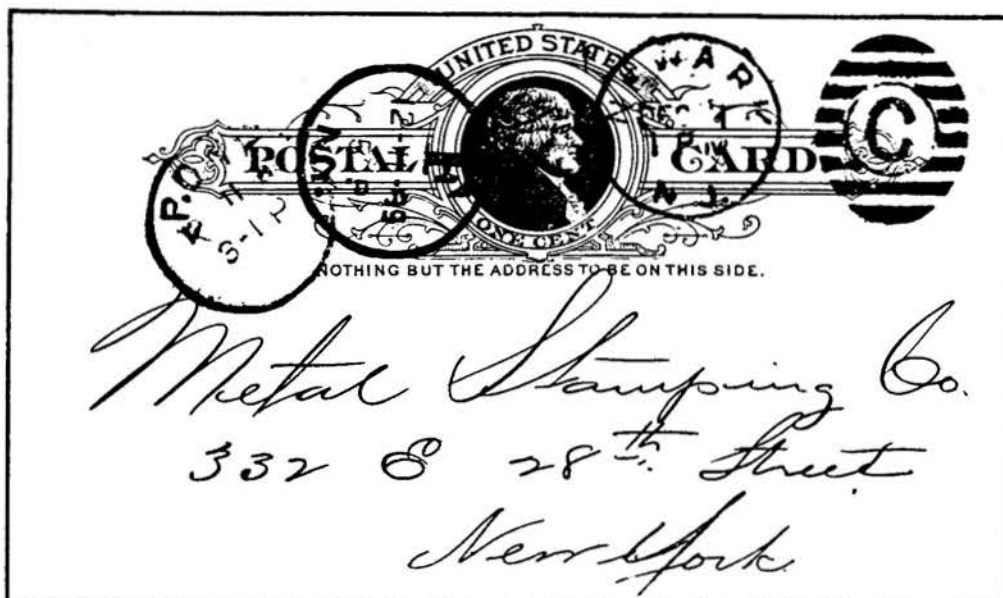 UNITED STATES
POSTAL CARD
ONE CENT
NOTHING BUT THE ADDRESS TO BE ON THIS SIDE.
C
Metal Stamping Co.
332 E 28th Street
New York